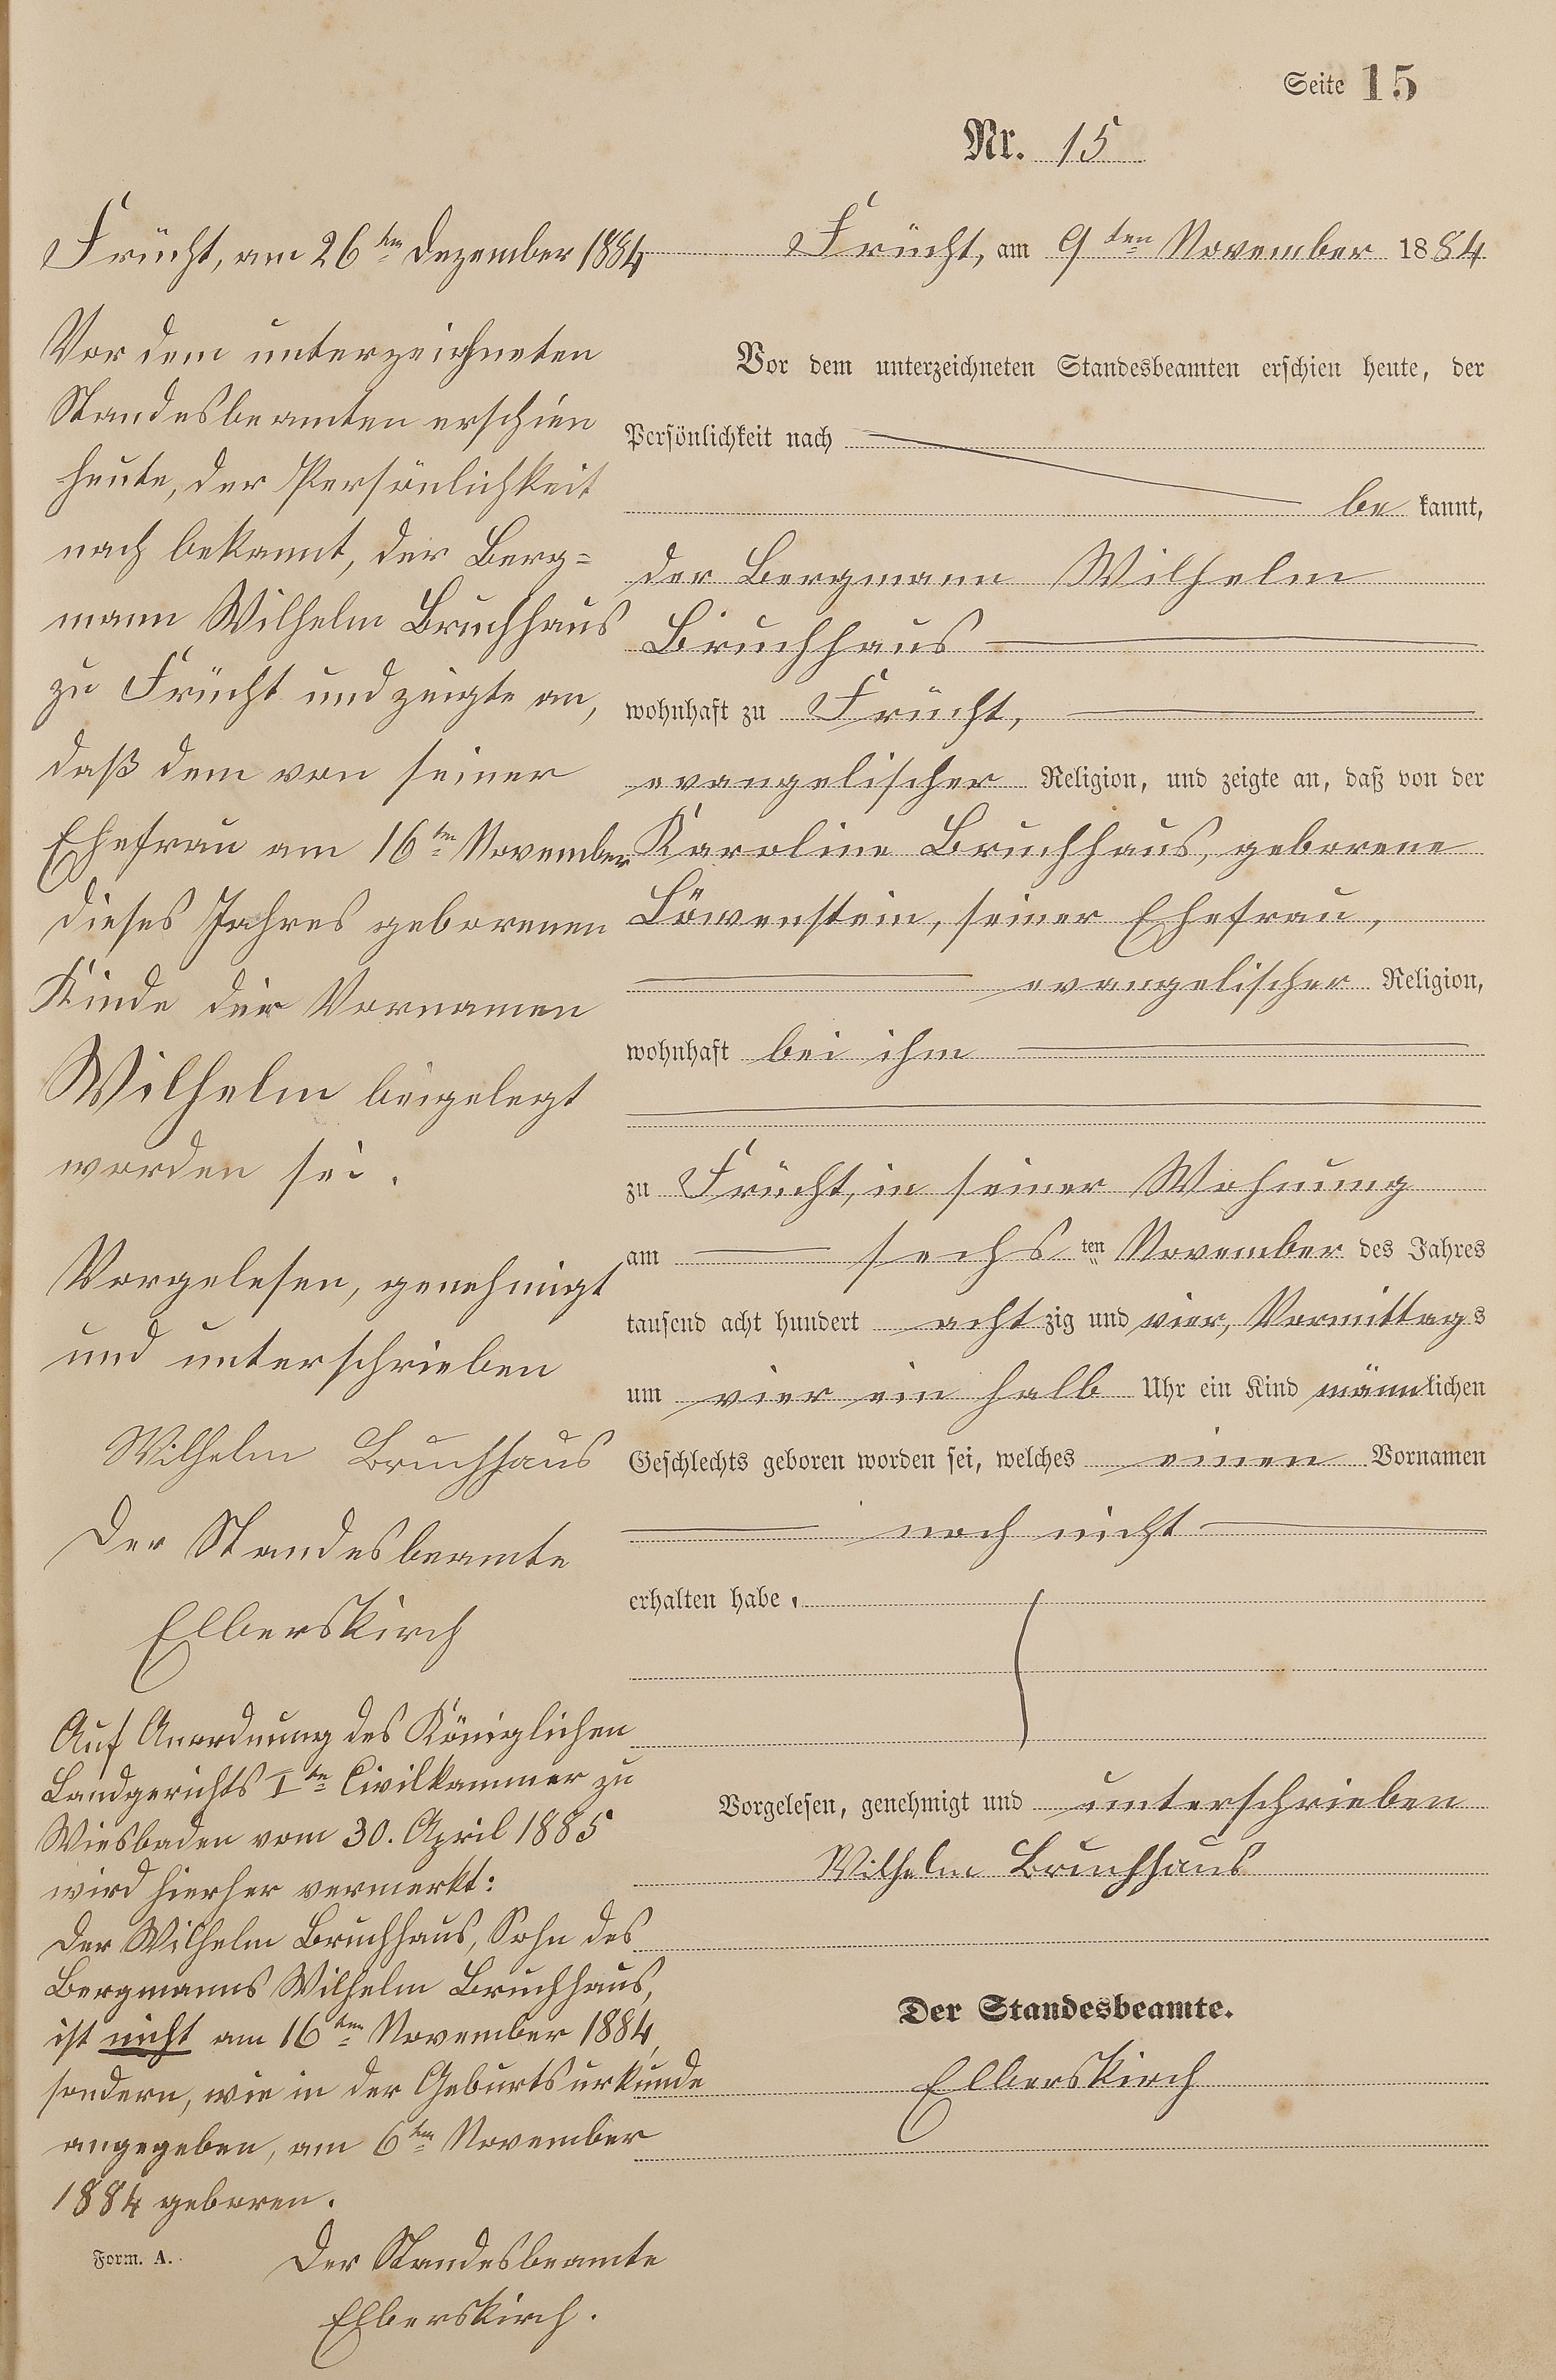 Seite 15
Nr. 15
Frücht, am 9ten November 1884
Vor dem unterzeichneten Standesbeamten erschien heute, der
Persönlichkeit nach
be kannt,
der Bergmann Wilhelm
Bruchhaus
wohnhaft zu Frücht,
evangelischer Religion, und zeigte an, daß von der
Karoline Bruchhaus, geborene
Löwenstein, seiner Ehefrau,
evangelischer Religion,
wohnhaft bei ihm
zu Frücht, in seiner Wohnung
am sechs ten November des Jahres
tausend acht hundert acht zig und vier, Vormittags
um vier ein halb Uhr ein Kind männlichen
Geschlechts geboren worden sei, welches einen Vornamen
noch nicht
erhalten habe.
Vorgelesen, genehmigt und unterschrieben
Wilhelm Bruchhaus
Der Standesbeamte.
Elberskirch
Frücht, am 26ten Dezember 1884
Vor dem unterzeichneten
Standesbeamten erschien
heute, der Persönlichkeit
nach bekannt, der Berg=
mann Wilhelm Bruchhaus
zu Frücht und zeigte an,
daß dem von seiner
Ehefrau am 16ten November
dieses Jahres geborenen
Kinde der Vornamen
Wilhelm beigelegt
worden sei.
Vorgelesen, genehmigt
und unterschrieben
Wilhelm Bruchhaus
Der Standesbeamte
Elberskirch
Auf Anordnung des Königlichen
Landgerichts Ite Civilkammer zu
Wiesbaden vom 30. April 1885
wird hierher vermerkt:
Der Wilhelm Bruchhaus, Sohn des
Bergmanns Wilhelm Bruchhaus,
ist nicht am 16ten November 1884,
sondern, wie in der Geburtsurkunde
angegeben, am 6ten November
1884 geboren.
Der Standesbeamte
Elberskirch.
Form. A.